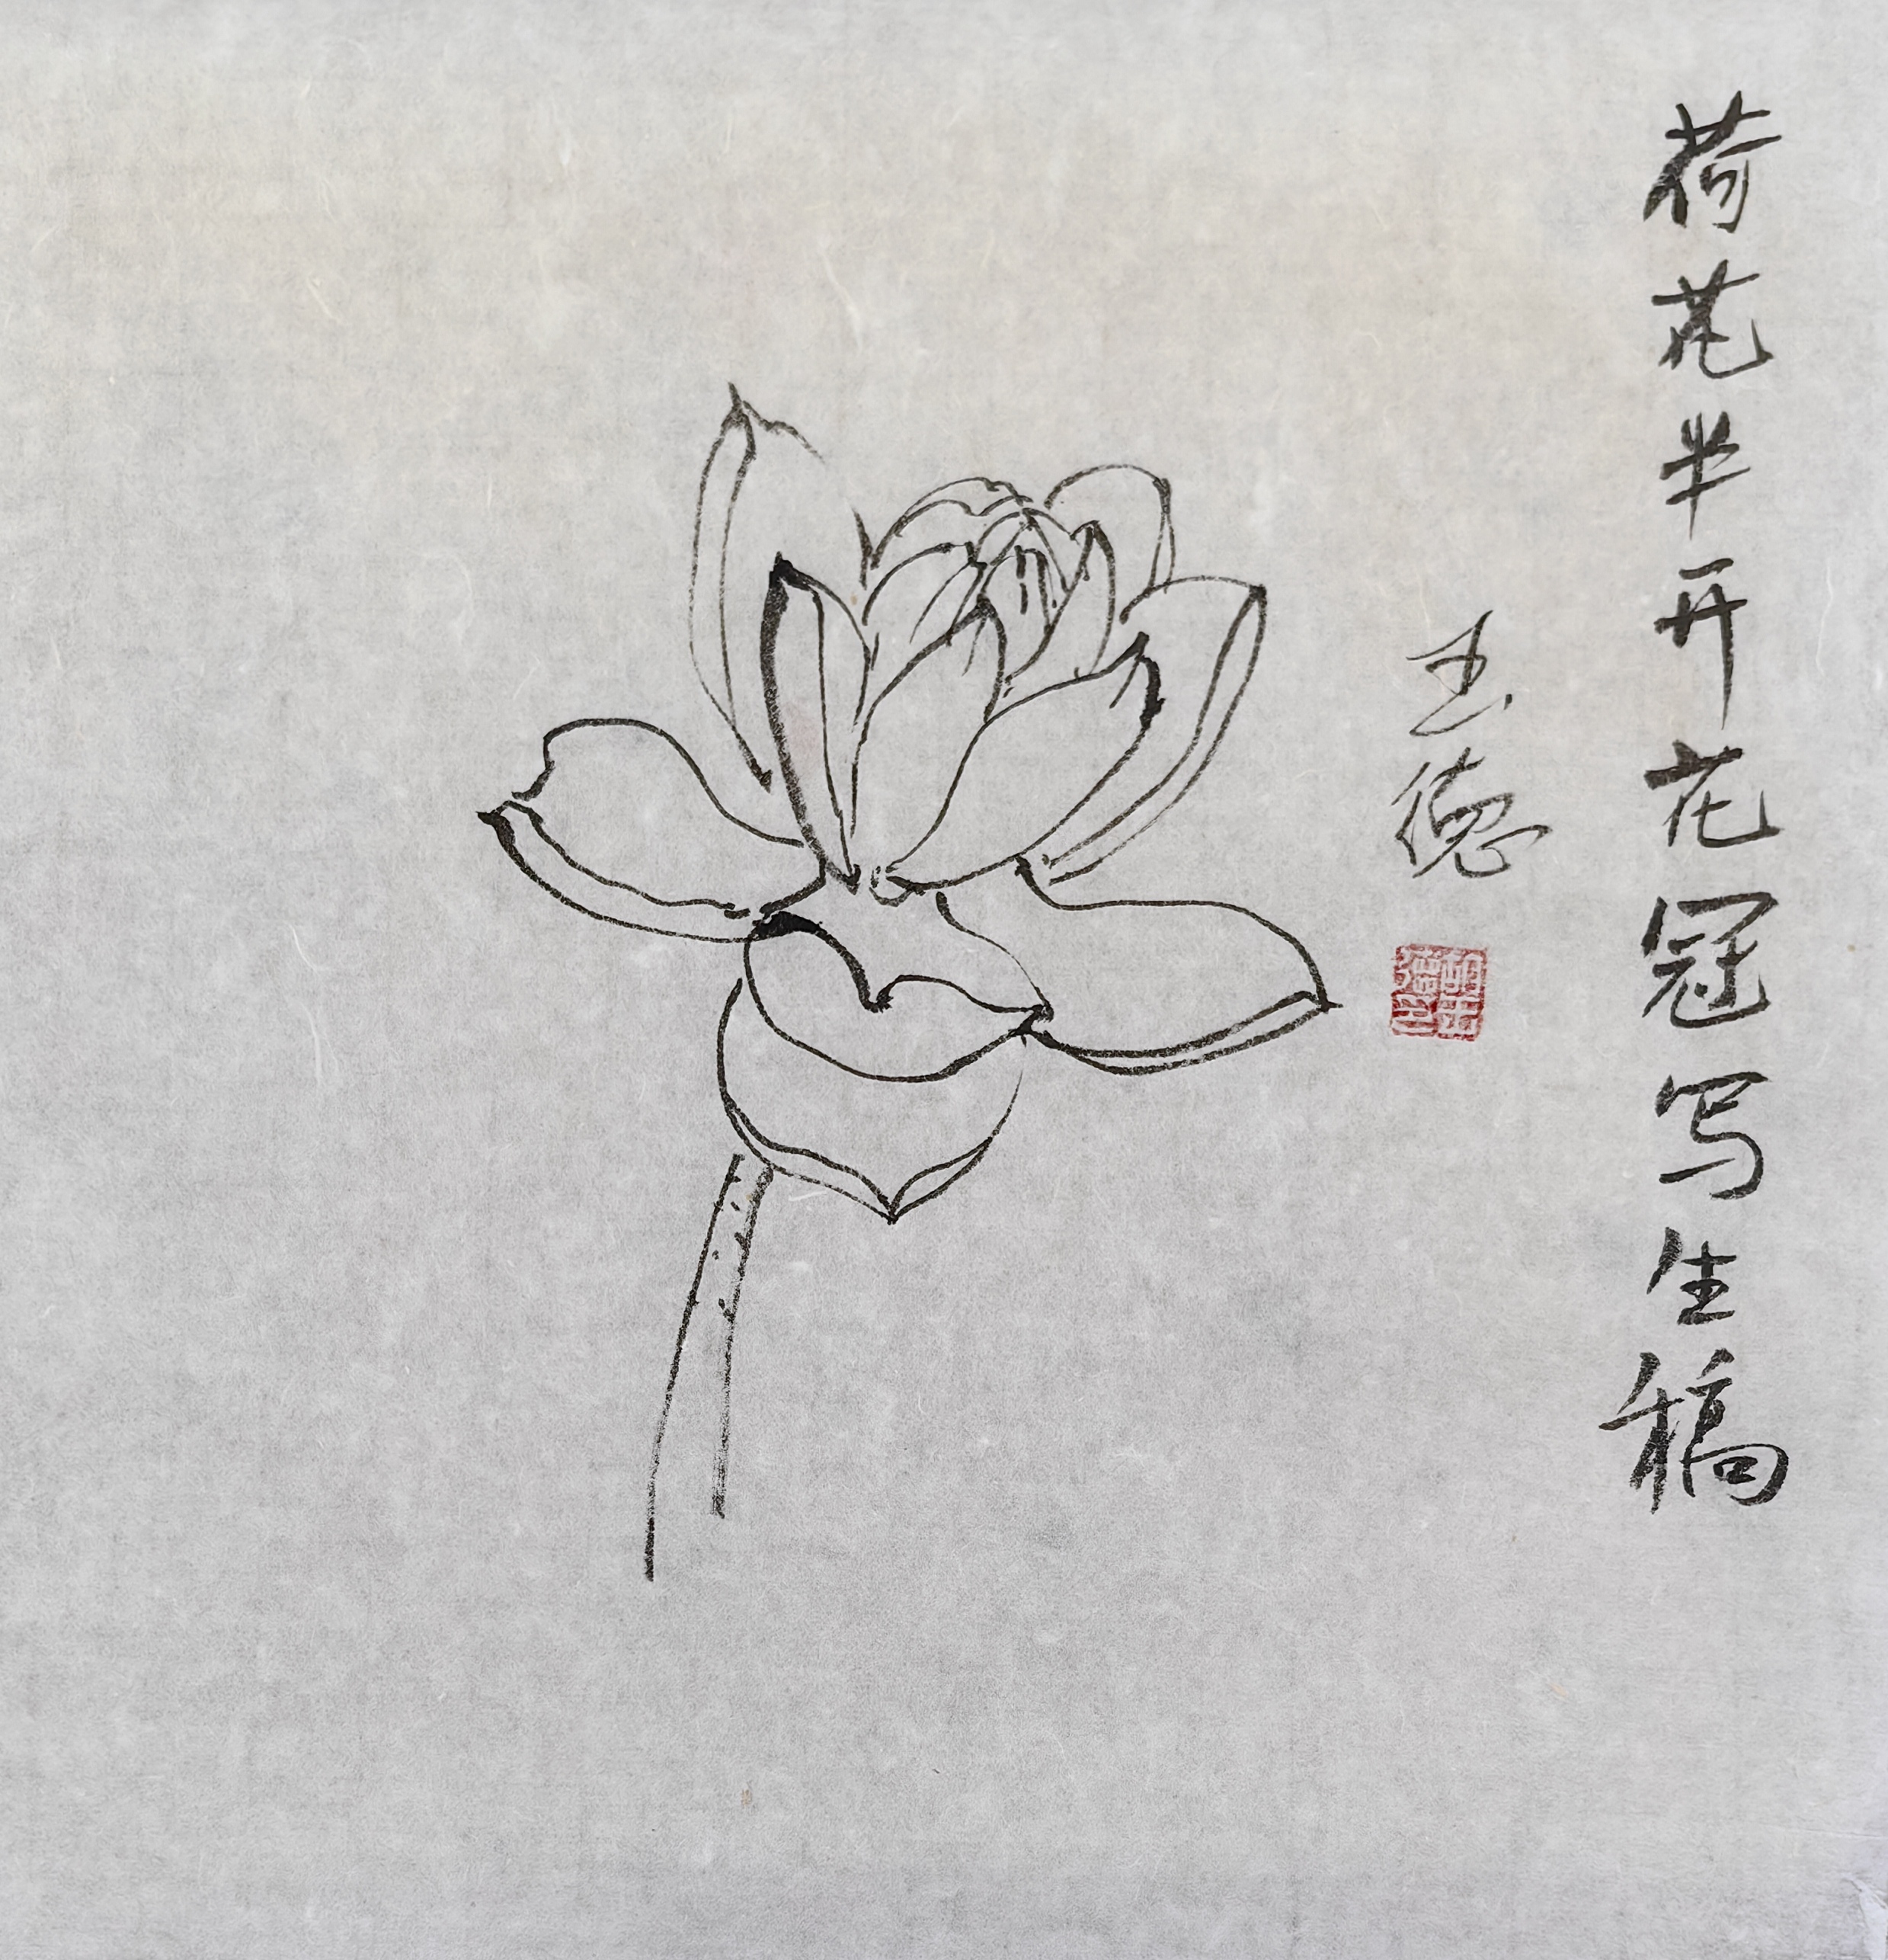 荷花半开花冠写生稿
玉德